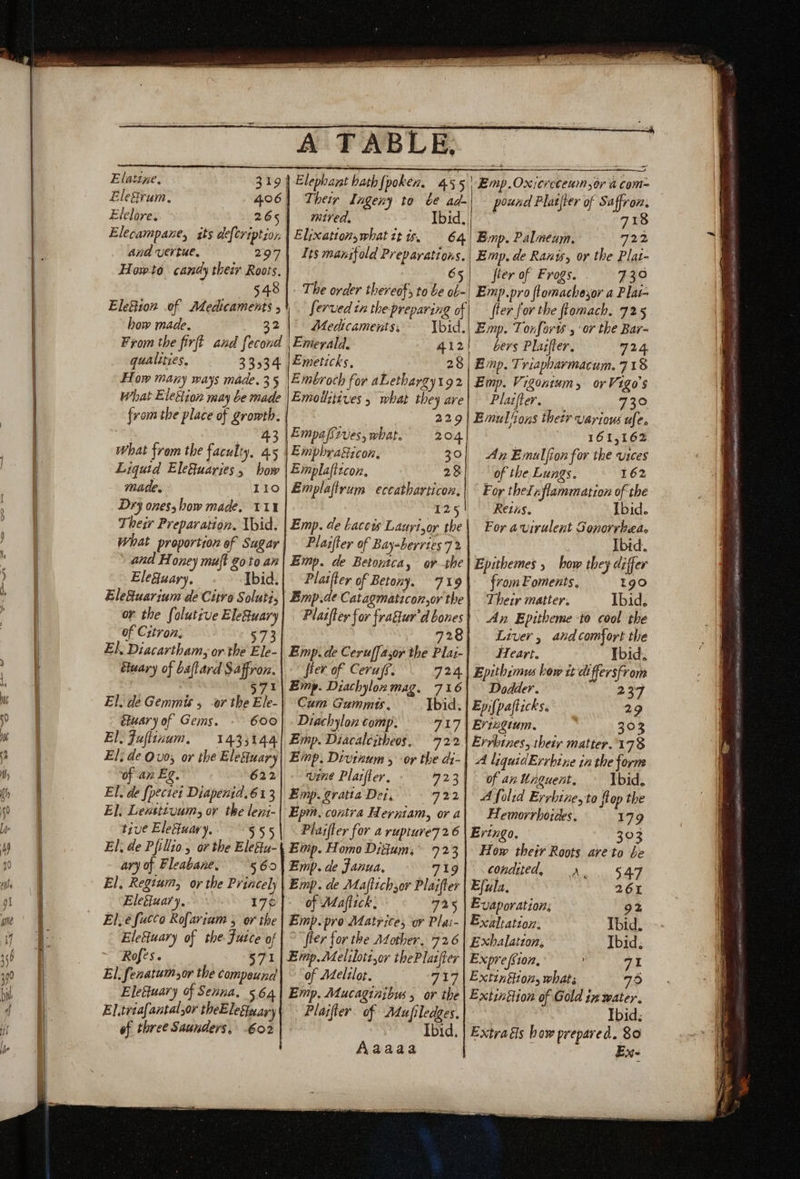 A TABLE.
Elatine. 319
Electrum. 406
Elelore. 265
Elecampane, its deſcription
and vertue. 297
How to candy their Roots.
548
Election of Medicaments,
how made. 32
From the firſt and ſecond
qualities. 33,34
How many ways made. 35
What Election may be made
from the place of growth.
43
What from the faculty. 45
Liquid Electuaries, how
made. 110
Dry ones, how made. 111
Their Preparation. Ibid.
What proportion of Sugar
and Honey muſt go to an
Electuary. Ibid.
Electuarium de Citro Soluti,
or the ſolutive Electuary
of Citron. 573
El. Diacartham, or the Ele-
ctuary of baſtard Saffron.
571
El. de Gemmis, or the Ele-
ctuary of Gems. 600
El. Juſtinum. 143,144
El. de Ovo, or the Electuary
of an Eg. 622
El. de ſpecies Diapenid. 613
El. Lenitivum, or the leni-
tive Electuary. 555
El. de Pſillio, or the Electu-
ary of Fleabane. 560
El. Regium, or the Princely
Electuary. 176
El. e ſucco Roſarum, or the
Electuary of the Juice of
Roſes. 571
El. ſenatum, or the compound
Electuary of Senna. 564
El. triaſantal, or the Electuary
of three Saunders. 602
Elephant hath ſpoken. 455
Their Ingeny to be ad-
mired. Ibid.
Elixation, what it is. 64
Its manifold Preparations.
65
The order thereof, to be ob-
ſerved in the preparing of
Medicaments. Ibid.
Emerald. 412
Emeticks. 28
Embroch for a Lethargy 192
Emollitives, what they are
229
Empaſtives, what. 204
Emphracticon. 30
Emplaſticon. 28
Emplaſtrum eccatharticon.
125
Emp. de baccis Lauri, or the
Plaiſter of Bay-berries 72
Emp. de Betonica, or the
Plaiſter of Betony. 719
Emp. de Catagmaticon, or the
Plaiſter for fractur'd bones
728
Emp. de Ceruſſa, or the Plai-
ſter of Ceruſſ. 724
Emp. Diachylon mag. 716
Cum Gummis. Ibid.
Diachylon comp. 717
Emp. Diacalcitheos. 722
Emp. Divinum, or the di-
vine Plaiſter. 723
Emp. gratia Dei. 722
Epm. contra Herniam, or a
Plaiſter for a rupture 726
Emp. Homo Dictum. 723
Emp. de Janua. 719
Emp. de Maſtich, or Plaiſter
of Maſtick. 725
Emp. pro Matrice, or Plai-
ſter for the Mother. 726
Emp. Meliloti, or the Plaiſter
of Melilot. 717
Emp. Mucaginibus, or the
Plaiſter of Muſiledges.
Ibid.
Emp. Oxicroceum, or a com-
pound Plaiſter of Saffron.
718
Emp. Palmeum. 722
Emp. de Ranis, or the Plai-
ſter of Frogs. 730
Emp. pro ſtomacho, or a Plai-
ſter for the ſtomach. 725
Emp. Tonſoris, or the Bar-
bers Plaiſter. 724
Emp. Triapharmacum. 718
Emp. Vigonium, or Vigo's
Plaiſter. 730
Emulſions their various uſe.
161,162
An Emulſion for the vices
of the Lungs. 162
For the Inflammation of the
Reins. Ibid.
For a virulent Gonorrhea.
Ibid.
Epithemes, how they differ
from Foments. 190
Their matter. Ibid.
An Epitheme to cool the
Liver, and comfort the
Heart. Ibid.
Epithimus how it differs from
Dodder. 237
Epiſpaſticks. 29
Eringium. 303
Errhines, their matter. 178
A liquid Errhine in the form
of an Unguent. Ibid.
A ſolid Errhine, to ſtop the
Hemorrhoides. 179
Eringo. 303
How their Roots are to be
condited. 547
Eſula. 261
Evaporation. 92
Exaltation. Ibid.
Exhalation. Ibid.
Expreſſion. 71
Extinction, what. 79
Extinction of Gold in water.
Ibid.
Extracts how prepared. 80
Aaaaa
Ex-